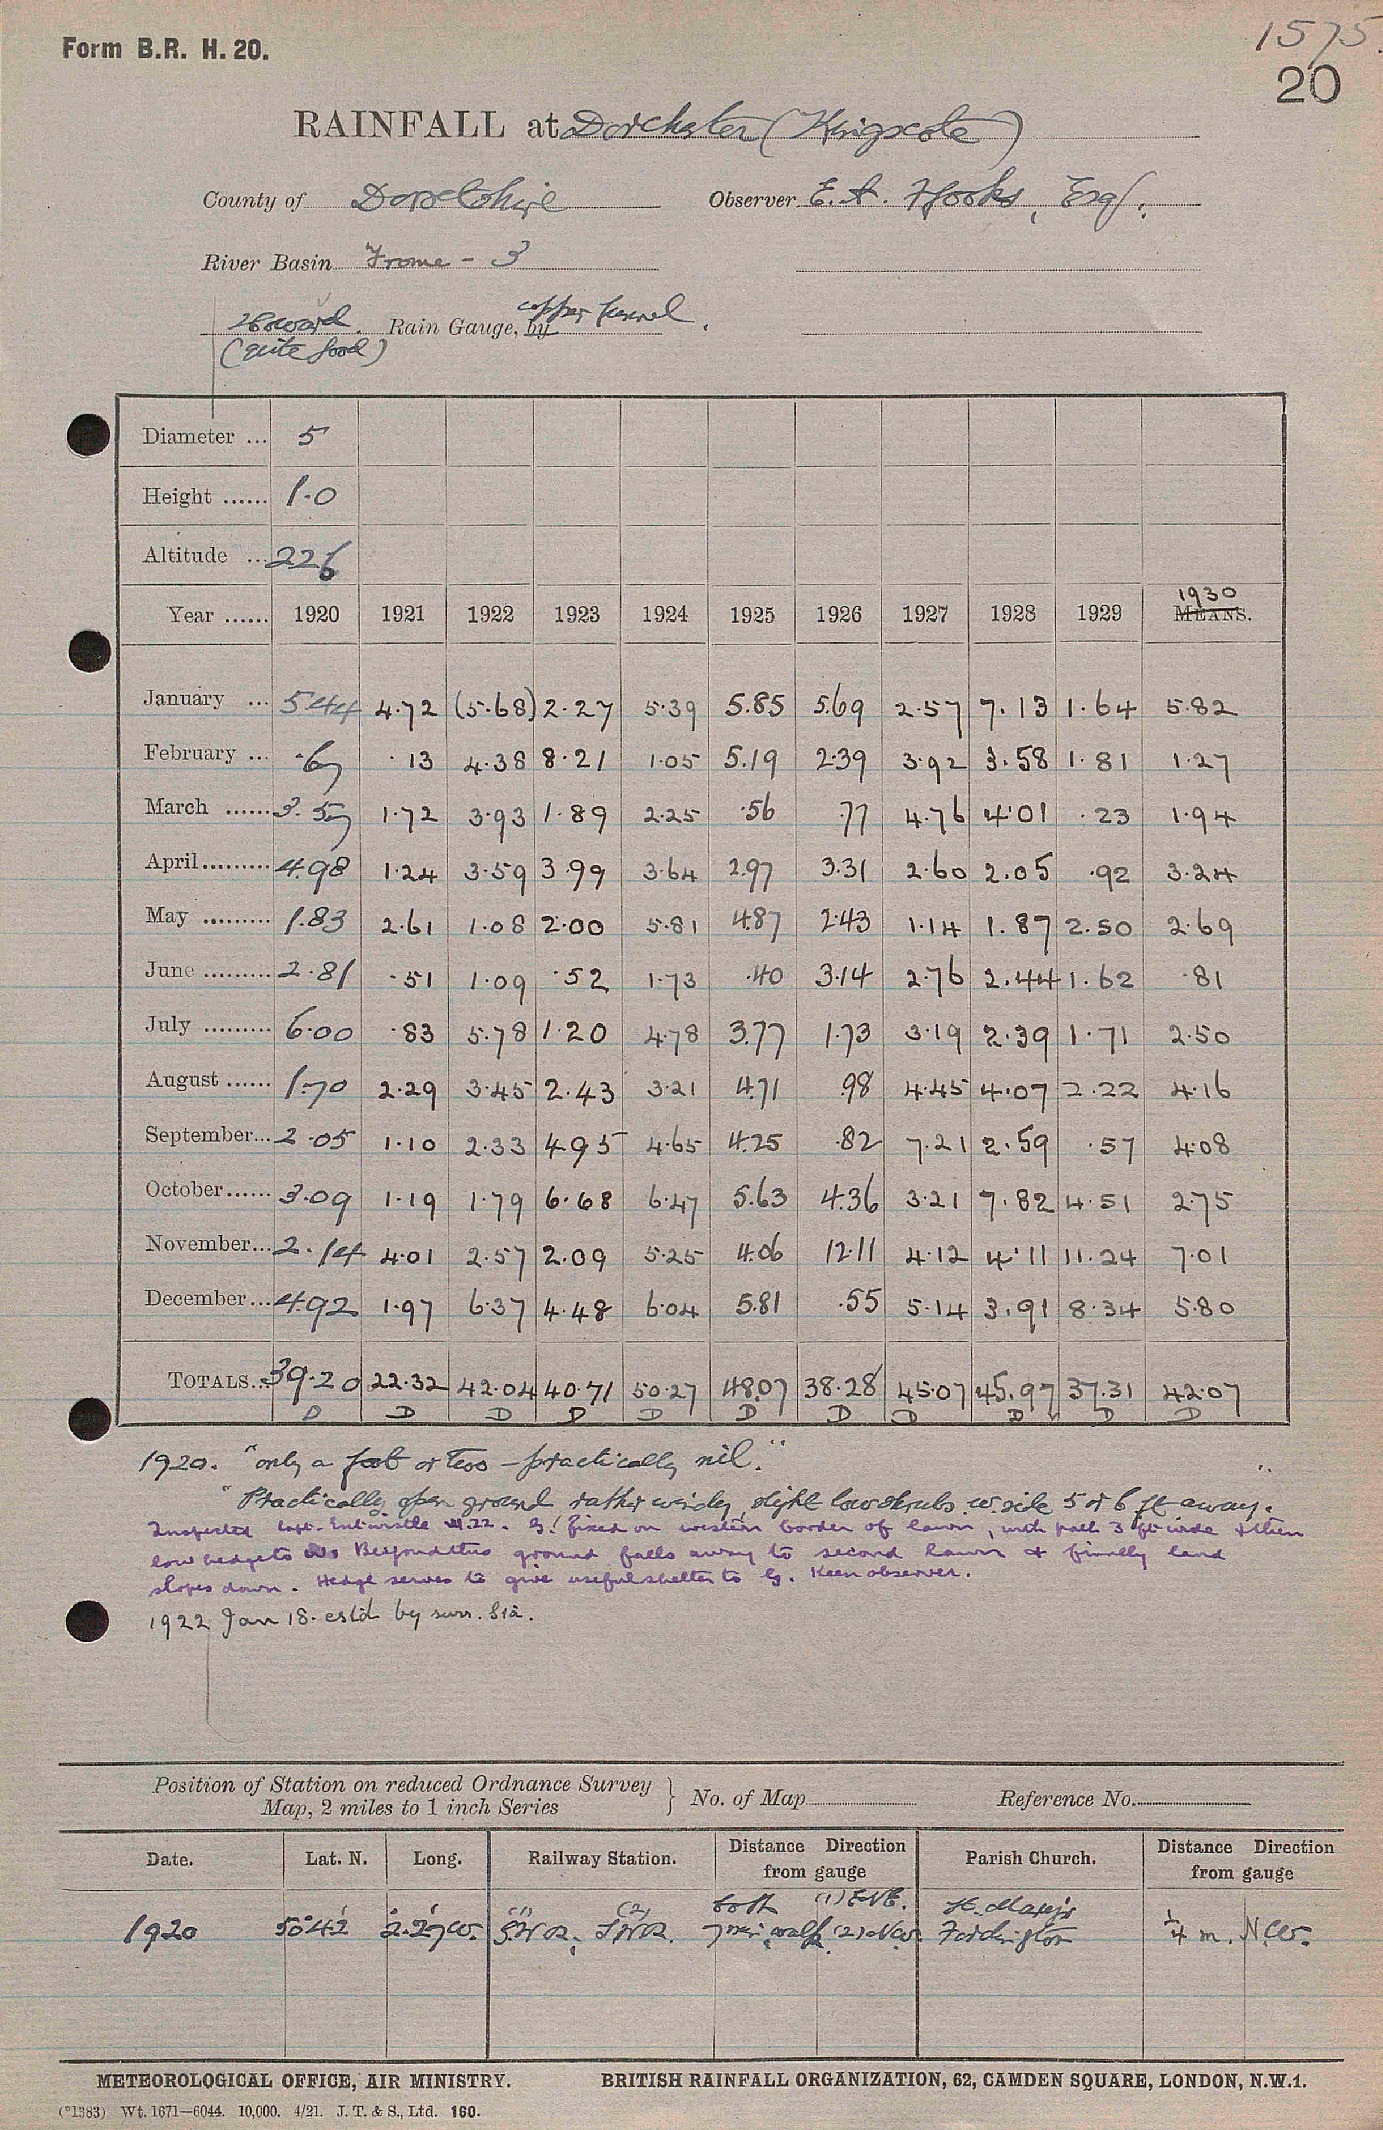 Form B.R. H. 20.
1575.
20
RAINFALL at Dorchester (Kingscote)
County of Dorsetshire Observer E. A. Ffooks, Esq.
River Basin Frome - 3
Howard. Rain Gauge, by copper funnel.
(quite good)
Diameter ... 5
Height ...... 1.0
Altitude ... 226
1930
Year ...... 1920 1921 1922 1923 1924 1925 1926 1927 1928 1929 MEANS.
January ... 5.44 4.72 (5.68) 2.27 5.39 5.85 5.69 2.57 7.13 1.64 5.82
February ... .67 .13 4.38 8.21 1.05 5.19 2.39 3.92 3.58 1.81 1.27
March ...... 3.57 1.72 3.93 1.89 2.25 .56 .77 4.76 4.01 .23 1.94
April ......... 4.98 1.24 3.59 3.99 3.64 2.97 3.31 2.60 2.05 .92 3.24
May ......... 1.83 2.61 1.08 2.00 5.81 4.87 2.43 1.14 1.87 2.50 2.69
June ......... 2.81 .51 1.09 .52 1.73 .40 3.14 2.76 2.44 1.62 .81
July ......... 6.00 .83 5.78 1.20 4.78 3.77 1.73 3.19 2.39 1.71 2.50
August ...... 1.70 2.29 3.45 2.43 3.21 4.71 .98 4.45 4.07 2.22 4.16
September... 2.05 1.10 2.33 4.95 4.65 4.25 .82 7.21 2.59 .57 4.08
October...... 3.09 1.19 1.79 6.68 6.47 5.63 4.36 3.21 7.82 4.51 2.75
November... 2.14 4.01 2.57 2.09 5.25 4.06 12.11 4.12 4.11 11.24 7.01
December... 4.92 1.97 6.37 4.48 6.04 5.81 .55 5.14 3.91 8.34 5.80
TOTALS... 39.20 22.32 42.04 40.71 50.27 48.07 38.28 45.07 45.97 37.31 42.07
D D D D D D D D D D D
1920. "only a foot or two - practically nil."
"Practically open ground rather windy, slight low shrubs W. side 5 or 6 ft away."
Inspected Capt. Entwistle 22. G. fixed on western border of lawn, with path 3 ft wide & then
low hedge to Beyond this ground falls away to second lawn & finally land
slopes down. Hedge serves to give useful shelter to G. Keen observer.
1922 Jan 18. est'd by surr. Sta.
Position of Station on reduced Ordnance Survey Map, 2 miles to 1 inch Series } No. of Map Reference No.
Date. Lat. N. Long. Railway Station. Distance Direction from gauge Parish Church. Distance Direction from gauge
1920 50°42' 2°27'W. (1) G.W.R. (2) S.W.R. both 7 min walk (1) ENE. (2) NW St. Mary's Fordington ¼ m. N.W.
METEOROLOGICAL OFFICE, AIR MINISTRY. BRITISH RAINFALL ORGANIZATION, 62, CAMDEN SQUARE, LONDON, N.W.1.
(*1383) Wt. 1671—6044. 10,000. 4/21. J. T. & S., Ltd. 160.